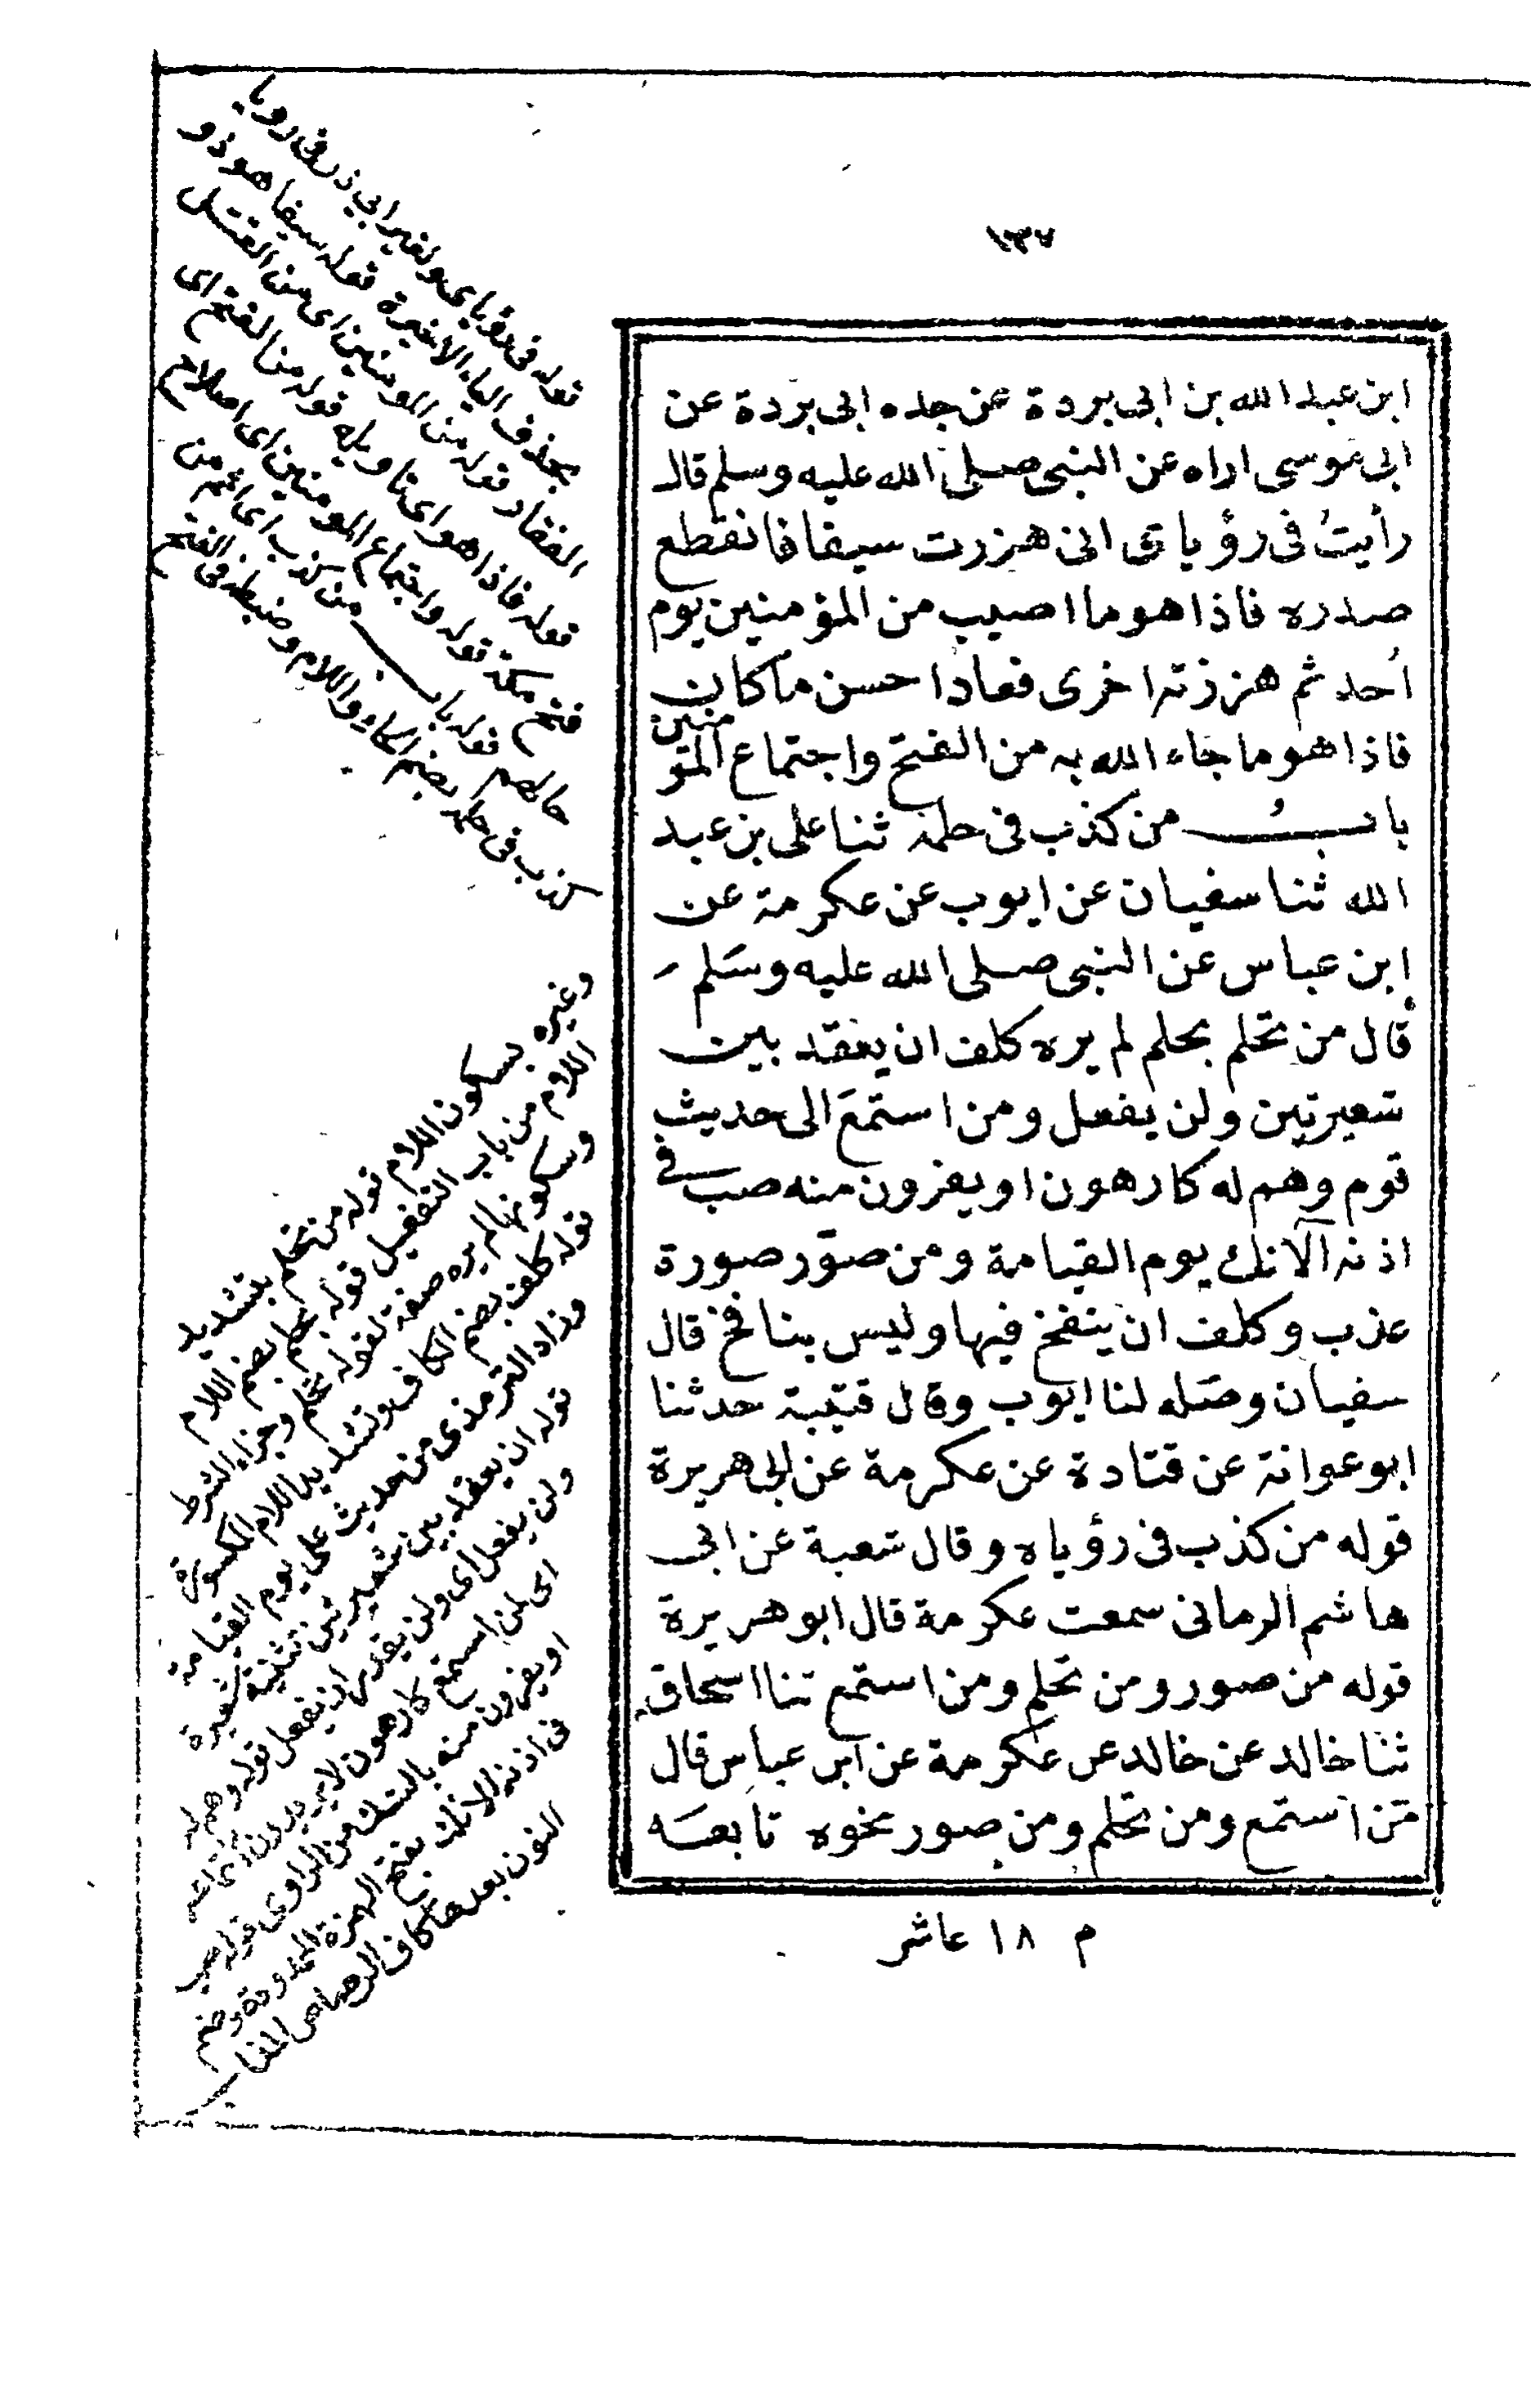 ١٣٧
ابن عبد الله بن ابى بردة عن جده ابى بردة عن
ابى موسى اراه عن النبى صلى الله عليه وسلم قال
رأيتُ فى رؤياى انى هززت سيفا فانقطع
صدره فاذا هو ما اصيب من المؤمنين يوم
اُحد ثم هززته اخرى فعاد احسن ما كان
فاذا هو ما جاء الله به من الفتح واجتماع المؤمنين
بابُ من كذب فى حلمه ثنا على بن عبد
الله ثنا سفيان عن ايوب عن عكرمة عن
ابن عباس عن النبى صلى الله عليه وسلم
قال من تحلم بحلم لم يره كلف ان يعقد بين
شعيرتين ولن يفعل ومن استمع الى حديث
قوم وهم له كارهون او يفرون منه صب فى
اذنه الآنك يوم القيامة ومن صوّر صورة
عذب وكلف ان ينفخ فيها وليس بنافخ قال
سفيان وصله لنا ايوب وقال قتيبة حدثنا
ابو عوانة عن قتادة عن عكرمة عن ابى هريرة
قوله من كذب فى رؤياه وقال شعبة عن ابى
هاشم الرمانى سمعت عكرمة قال ابو هريرة
قوله من صور ومن تحلم ومن استمع ثنا اسحاق
ثنا خالد عن خالد عن عكرمة عن ابن عباس قال
مَن استمع ومن تحلم ومن صور نحوه تابعه
م ١٨ عاشر
قوله فى رؤياى ولغير ابي ذر فى رويا
بحذف الياء الاخيرة قوله سيفا هو ذو
الفقار قوله من المومنين اى من القتل
قوله فاذا هو اى تاويله قوله من الفتح اى
فتح مكة قوله واجتماع المومنين اى اصلاح
حالهم قوله باب من كذب اى اثم من
كذب فى حلمه بضم الحاء واللام وضبطه فى الفتح
وغيره بسكون اللام قوله من تحلم بتشديد
اللام من باب التفعيل قوله بحلم بضم اللام
وسكونها لم يره صفة لقوله بحلم وجزاء الشرط
قوله كلف بضم الكاف وتشديد اللام المكسورة
وزاد الترمذى من حديث على يوم القيامة
قوله ان يعقد بين شعيرتين تثنية شعيرة
ولن يفعل اى ولن يقدر ان يفعل قوله وهم له
اى لمن استمع كارهون لا يريدون استماعه
او يفرون منه بالشك من الراوى قوله صب
فى اذنه الآنك بفتح الهمزة الممدودة وضم
النون بعدها كاف الرصاص المذاب